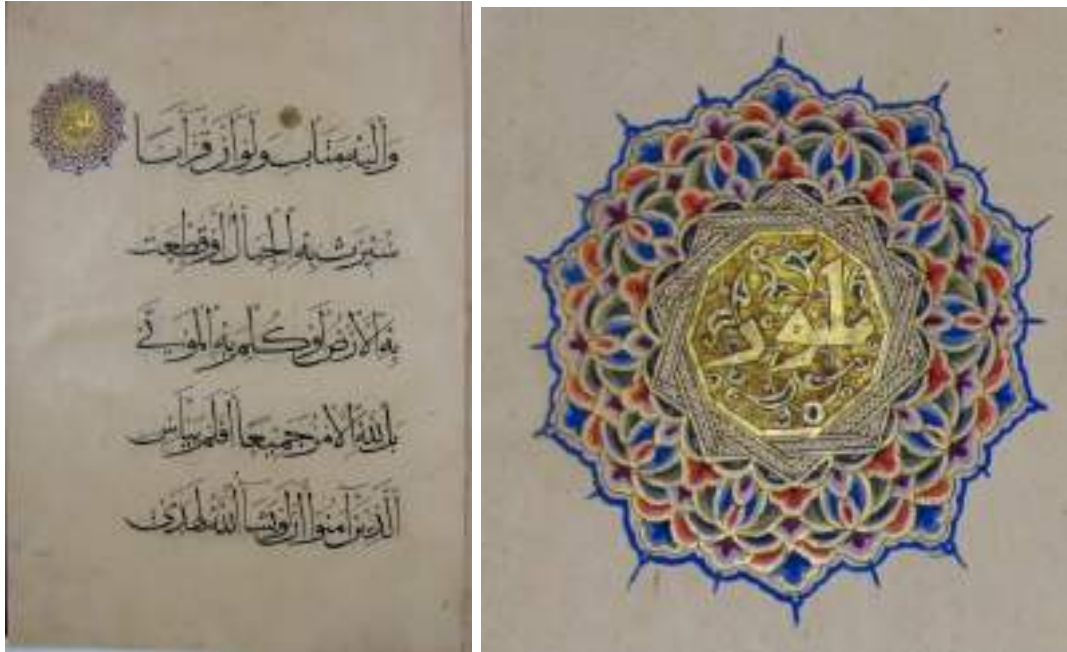 وإليه متاب ولو أن قرآنا
سيرت به الجبال أو قطعت
به الأرض أو كلم به الموتى
بل لله الأمر جميعا أفلم ييأس
الذين آمنوا أن لو يشاء الله لهدى